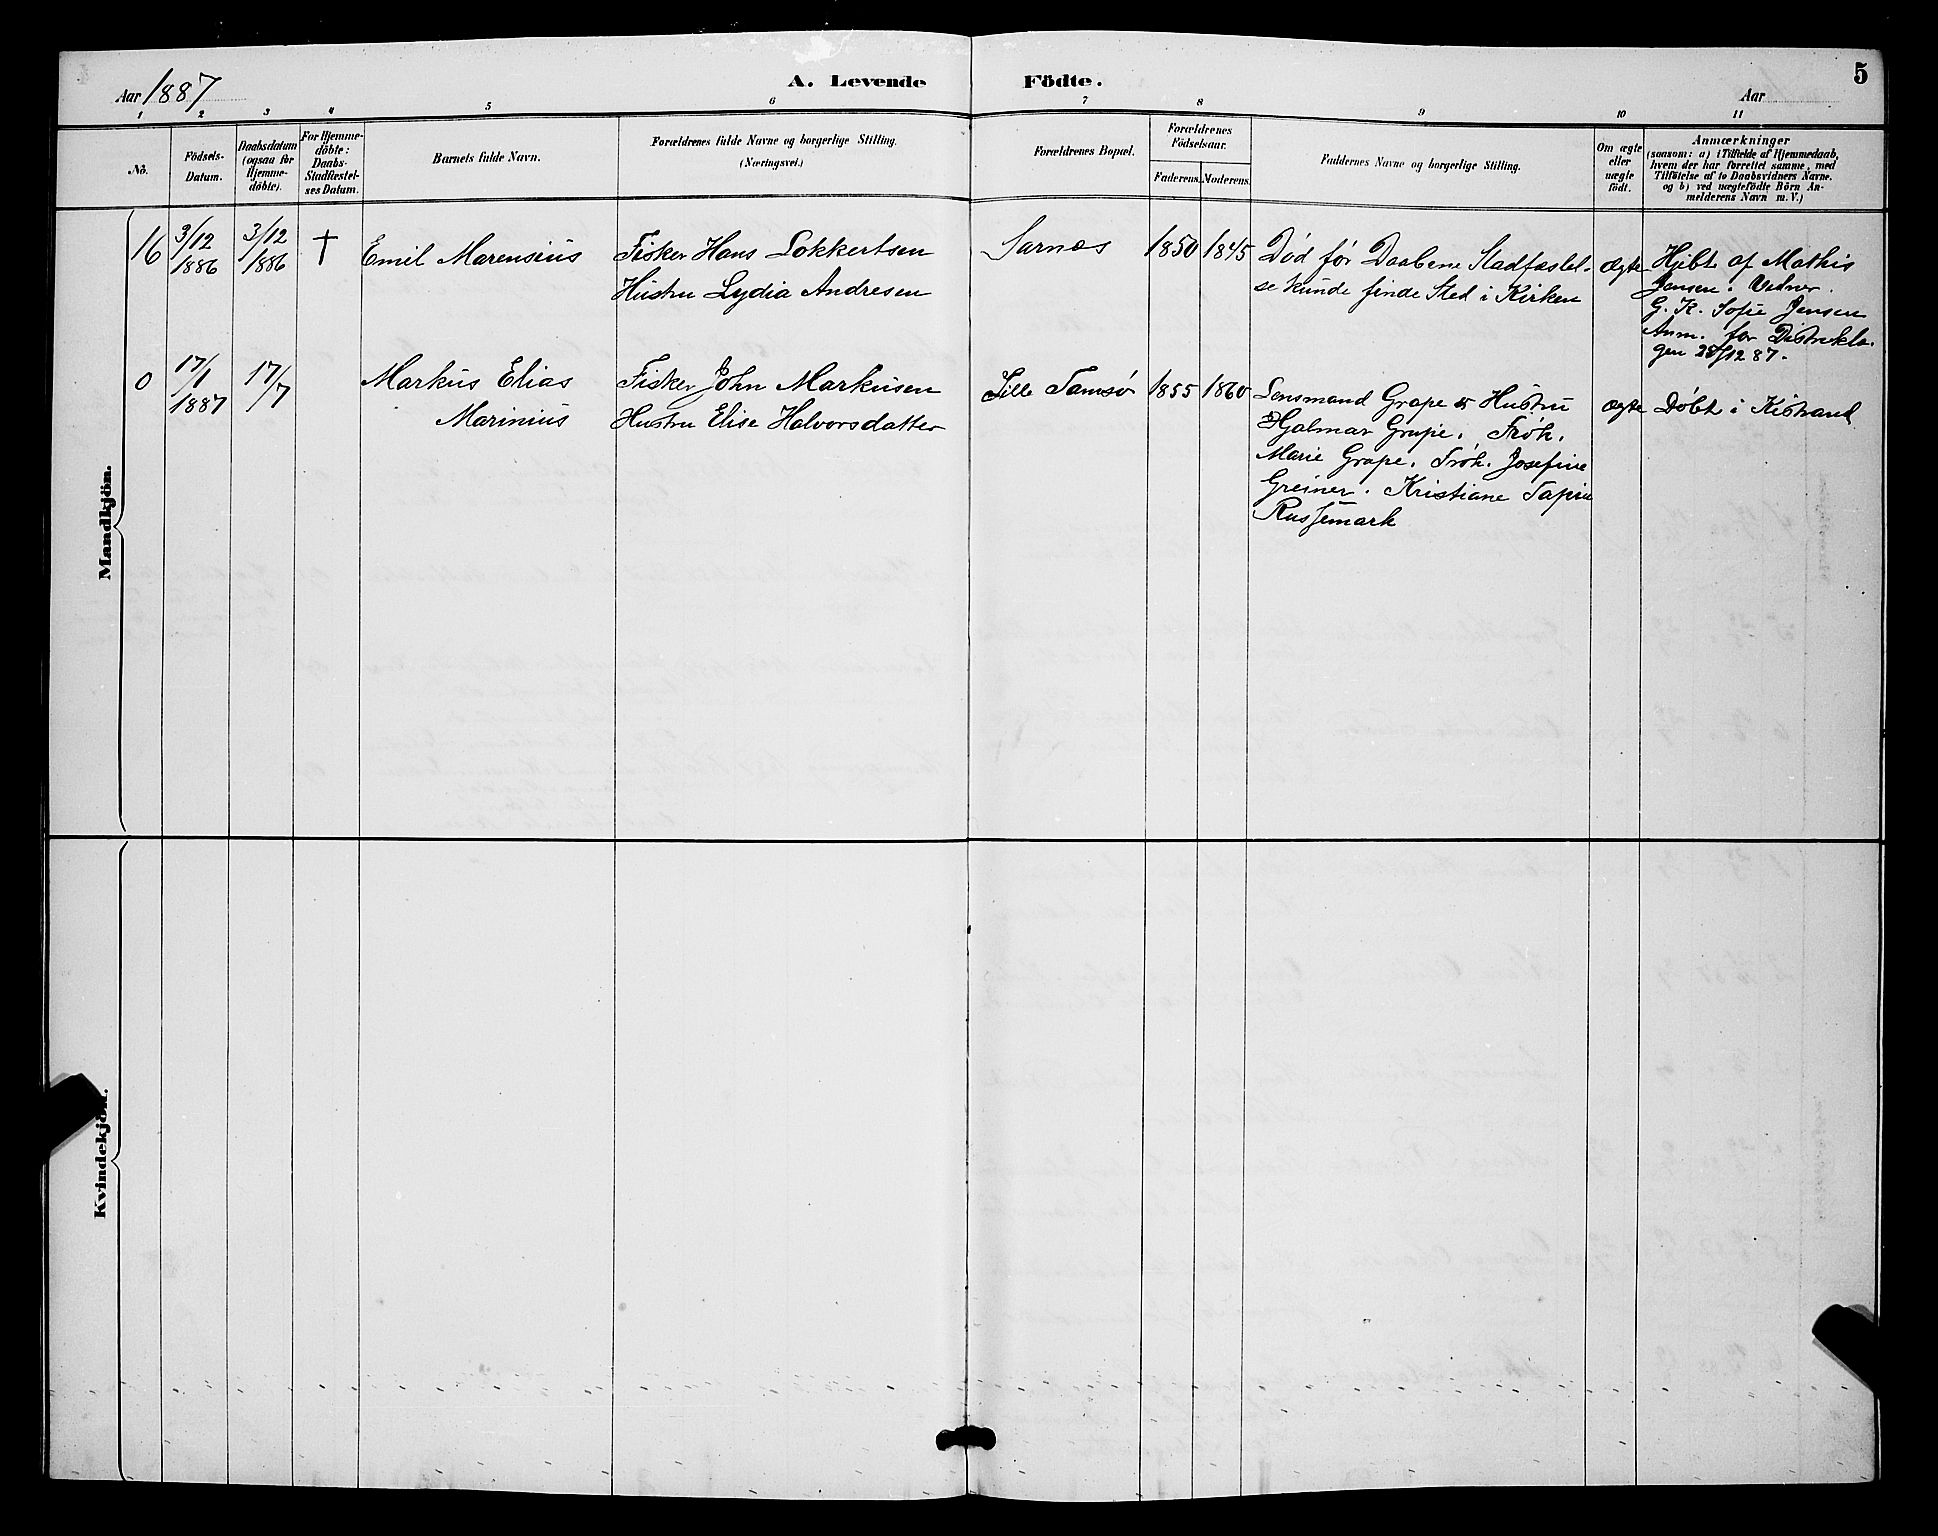 Aar 1887
A. Levende Födte.
5
Aar
1 2 3 4 5 6 7 8 9 10 11
No.
Födsels-
Datum.
Daabsdatum
(ogsaa for
Hjemme-
döbte).
For Hjemme-
döbte:
Daabs-
Stadfæstel-
ses Datum.
Barnets fulde Navn.
Forældrenes fulde Navne og borgerlige Stilling.
(Næringsvei.)
Forældrenes Bopæl.
Forældrenes
Födselsaar.
Faderens. Moderens.
Faddernes Navne og borgerlige Stilling.
Om ægte
eller
uægte
födt.
Anmærkninger
(saasom: a) i Tilfælde af Hjemmedaab,
hvem der har forrettet samme, med
Tilföielse af to Daabsvidners Navne.
og b) ved uægtefödte Börn An-
melderens Navn m. V.)
Mandkjön.
16
3/12
1886
3/12
1886
†
Emil Marensius
Fisker Hans Lokkertsen
Hustru Lydia Andresen
Sarnæs
1850
1845
Død før Daabens Stadfæstel-
se kunde finde Sted i Kirken
ægte
Hjdbt af Mathis
Jensen. Vidner.
G. K. Sofie Jensen
Anm. for Distriktla-
gen 28/12 87.
0
17/1
1887
17/7
Markus Elias
Marinius
Fisker John Markusen
Hustru Elise Halvorsdatter
Lille Tamsø
1855
1860
Lensmand Grape & Hustru
Hjalmar Grape. Frøk.
Marie Grape. Frøk. Josefine
Greiner. Kristiane Sapin
Russemark
ægte
Døbt i Kistrand
Kvindekjön.